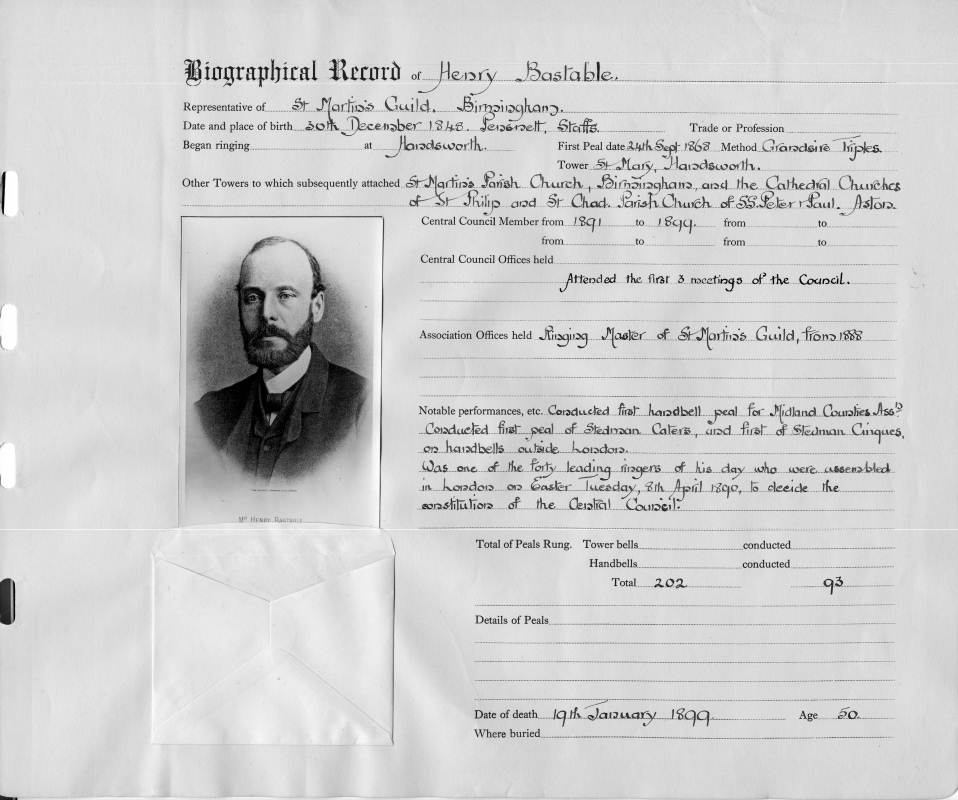 Biographical Record of Henry Bastable.
Representative of St Martin's Guild. Birmingham.
Date and place of birth 30th December 1848. Pensnett, Staffs. Trade or Profession
Began ringing at Handsworth. First Peal date 24th Sept 1868 Method Grandsire Triples.
Tower St Mary, Handsworth.
Other Towers to which subsequently attached St Martin's Parish Church, Birmingham, and the Cathedral Churches
of St Philip and St Chad. Parish Church of SS. Peter & Paul. Aston.
Central Council Member from 1891 to 1899. from to
from to from to
Central Council Offices held
Attended the first 3 meetings of the Council.
Association Offices held Ringing Master of St Martin's Guild, from 1888
Notable performances, etc. Conducted first handbell peal for Midland Counties Assn.
Conducted first peal of Stedman Caters, and first of Stedman Cinques,
on handbells outside London.
Was one of the forty leading ringers of his day who were assembled
in London on Easter Tuesday, 8th April 1890, to decide the
constitution of the Central Council.
Mr HENRY BASTABLE
Total of Peals Rung. Tower bells conducted
Handbells conducted
Total 202 93
Details of Peals
Date of death 19th January 1899. Age 50.
Where buried